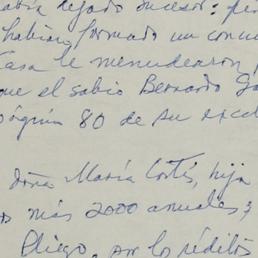 dejado sucesor: 
habían formado un
Casa le menudearon
que el sabio Bernardo
página 80 de su
doña María Cortés, hija
más 2000 anuales;
Pliego, por los réditos